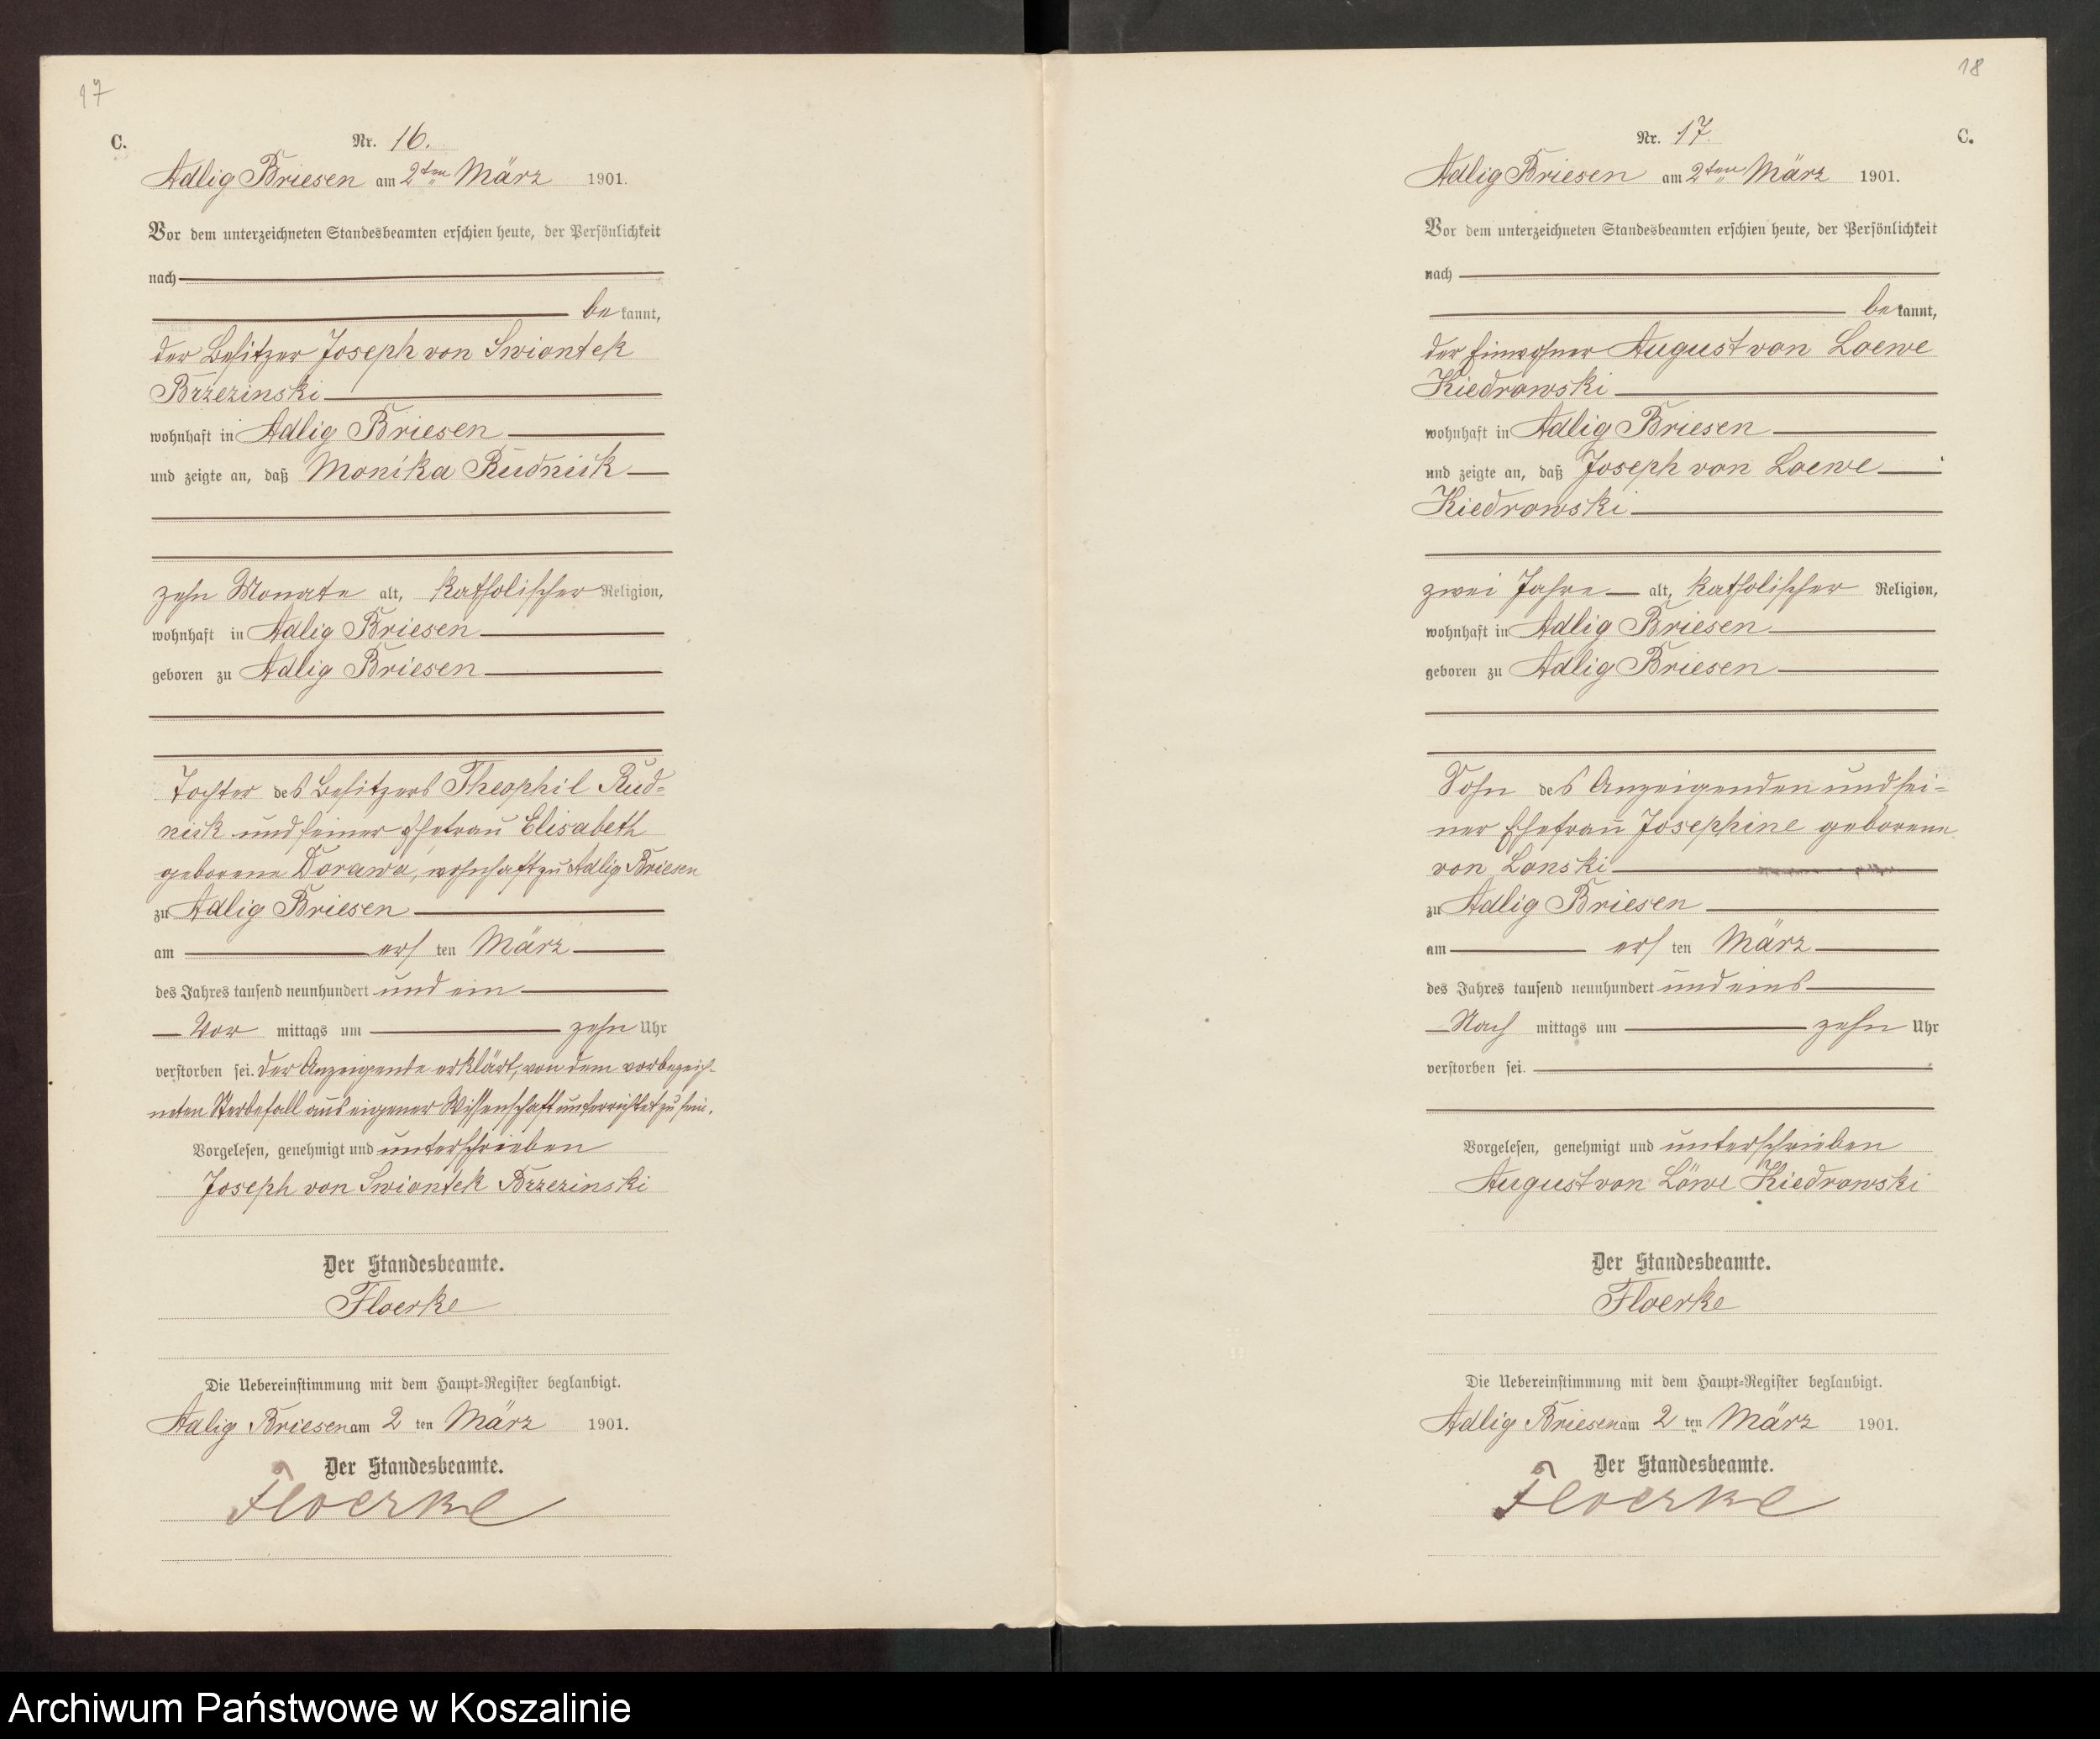 17
C.
Nr. 16.
Adlig Briesen am 2ten März 1901.
Vor dem unterzeichneten Standesbeamten erschien heute, der Persönlichkeit
nach
be kannt,
der Besitzer Joseph von Swiontek
Brzezinski
wohnhaft in Adlig Briesen
und zeigte an, daß Monika Rudnick
zehn Monate alt, katholischer Religion,
wohnhaft in Adlig Briesen
geboren zu Adlig Briesen
Tochter des Besitzers Theophil Rud=
nick und seiner Ehefrau Elisabeth
geborene Dorawa, wohnhaft zu Adlig Briesen
zu Adlig Briesen
am ers ten März
des Jahres tausend neunhundert und ein
Vor mittags um zehn Uhr
verstorben sei. Der Anzeigende erklärt, von dem vorbezeich-
neten Sterbefall aus eigener Wissenschaft unterrichtet zu sein.
Vorgelesen, genehmigt und unterschrieben
Joseph von Swiontek Brzezinski
Der Standesbeamte.
Floerke
Die Uebereinstimmung mit dem Haupt-Register beglaubigt.
Adlig Briesen am 2 ten März 1901.
Der Standesbeamte.
Floerke
18
Nr. 17.
C.
Adlig Briesen am 2ten März 1901.
Vor dem unterzeichneten Standesbeamten erschien heute, der Persönlichkeit
nach
be kannt,
der Einwohner August von Loewe
Kiedrowski
wohnhaft in Adlig Briesen
und zeigte an, daß Joseph von Loewe
Kiedrowski
zwei Jahre alt, katholischer Religion,
wohnhaft in Adlig Briesen
geboren zu Adlig Briesen
Sohn des Anzeigenden und sei=
ner Ehefrau Josephine geborene
von Lonski
zu Adlig Briesen
am ers ten März
des Jahres tausend neunhundert und eins
Nach mittags um zehn Uhr
verstorben sei.
Vorgelesen, genehmigt und unterschrieben
August von Löwe Kiedrowski
Der Standesbeamte.
Floerke
Die Uebereinstimmung mit dem Haupt-Register beglaubigt.
Adlig Briesen am 2 ten März 1901.
Der Standesbeamte.
Floerke
Archiwum Państwowe w Koszalinie